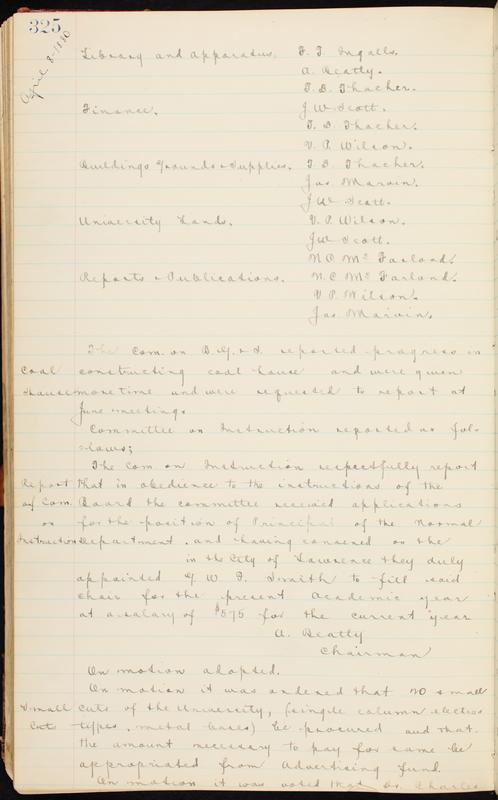 325
April 8-1880
Library and Apparatus. F. T. Ingalls.
A. Beatly.
T. D. Thacher.
Finance. J W Scott.
T. D. Thacher.
V. P. Wilson.
Buildings Grounds & Supplies. T. D. Thacher.
Jas. Marvin.
J W Scott.
University Lands. V. P. Wilson.
J W Scott.
N. C. Mc Farland.
Reports & Publications. N. C. Mc Farland.
V P. Wilson.
Jas. Marvin.
The Com. on B. G. & S. reported progress in
Coal constructing coal house and were given
House more time and were requested to report at
June meeting.
Committee on Instruction reported as fol-
lows;
The Com. on Instruction respectfully report
Report that in obedience to the instructions of the
of Com. Board the committee received applications
on for the position of Principal of the Normal
Instruction Department. and having convened on the
in the City of Lawrence they duly
appointed W. Smith to fill said
chair for the present Academic year
at a salary of $575 for the current year
A. Beatly
Chairman
On motion adopted.
On motion it was ordered that 20 small
Small cuts of the University, (single column electro
Cuts types, metal bases) be procured and that
the amount necessary to pay for same be
appropriated from Advertising fund.
On motion it was voted that Dr. Charles